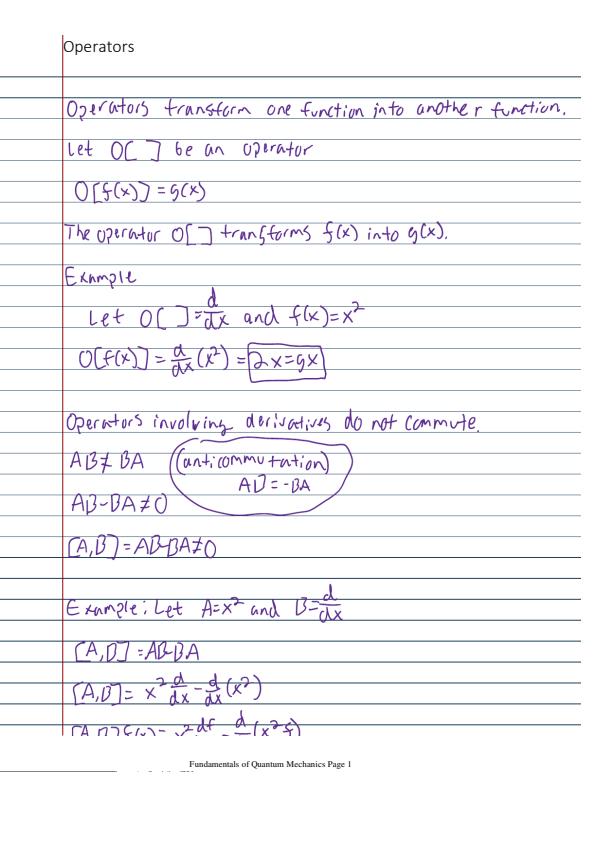 Operators
Operators transform one function into another function.
Let O[ ] be an operator
O[f(x)] = g(x)
The operator O[ ] transforms f(x) into g(x).
Example
Let O[ ] = d/dx and f(x) = x²
O[f(x)] = d/dx (x²) = 2x = gx
Operators involving derivatives do not commute.
AB ≠ BA (anticommutation)
AB = -BA
AB - BA ≠ 0
[A,B] = AB - BA ≠ 0
Example: Let A = x² and B = d/dx
[A,B] = AB - BA
[A,B] = x² d/dx - d/dx (x²)
[A,B] f(x) = x² df - d (x² f)
Fundamentals of Quantum Mechanics Page 1